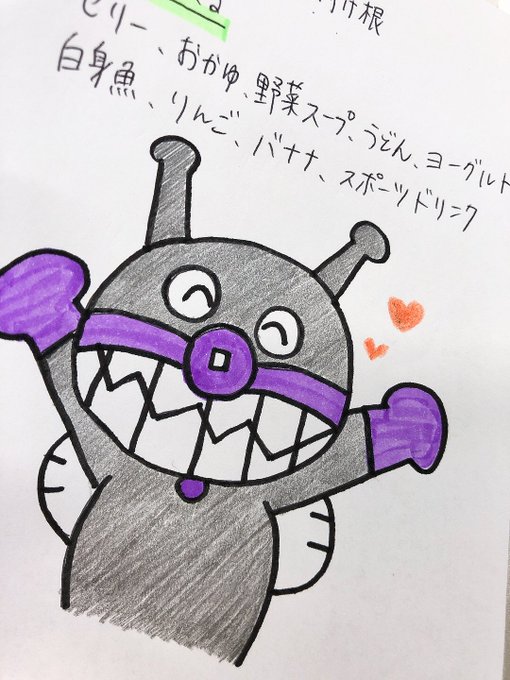 ゼリー、おかゆ、野菜スープ、うどん、ヨーグルト
白身魚、りんご、バナナ、スポーツドリンク